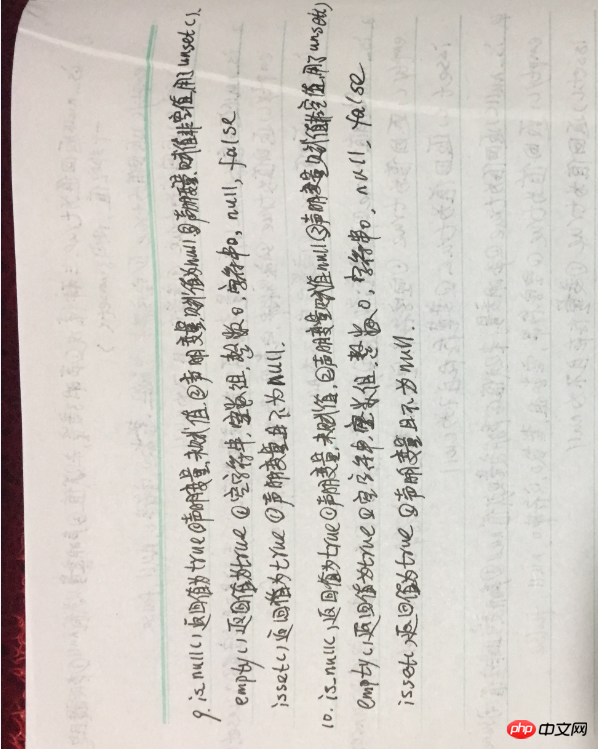 9. is_null() 返回值为true ①声明变量,未赋值 ②声明变量,赋值为null ③声明变量,赋值非空值,用了unset().
empty() 返回值为true ①空字符串,空数组,整数0,字符串0,null,false
isset() 返回值为true ①声明变量且不为null.
10. is_null() 返回值为true ①声明变量,未赋值, ②声明变量赋值null ③声明变量,赋值非空值,用了unset()
empty() 返回值为true ①空字符串,空数组,整数0,字符串0,null,false
isset() 返回值为true ①声明变量且不为null.
php 中文网